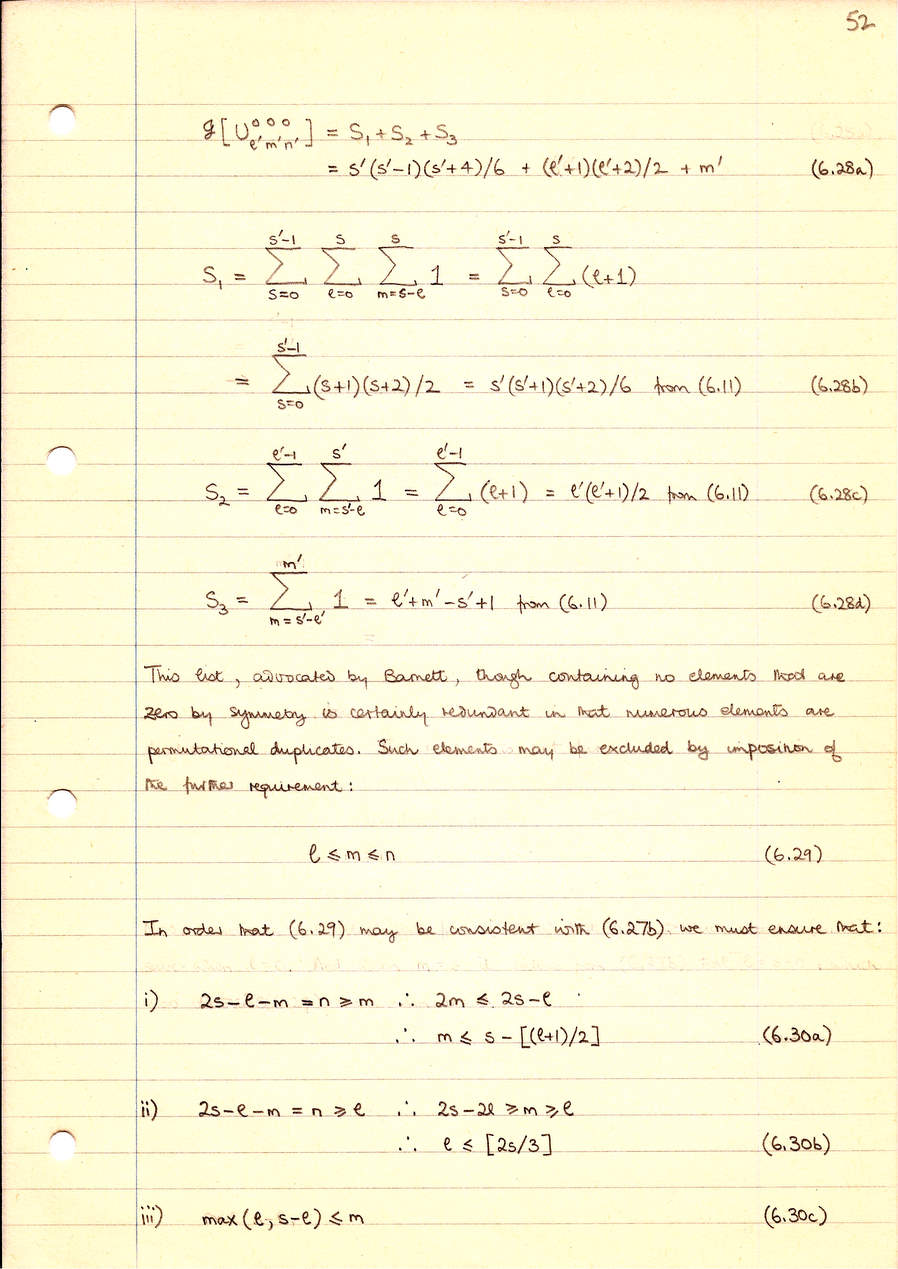 52
g[U⁰⁰⁰ₗ'ₘ'ₙ'] = S₁+S₂+S₃
= s'(s'-1)(s'+4)/6 + (ℓ'+1)(ℓ'+2)/2 + m' (6.28a)
S₁ = ∑_{s=0}^{s'-1} ∑_{ℓ=0}^{s} ∑_{m=s-ℓ}^{s} 1 = ∑_{s=0}^{s'-1} ∑_{ℓ=0}^{s} (ℓ+1)
= ∑_{s=0}^{s'-1} (s+1)(s+2)/2 = s'(s'+1)(s'+2)/6 from (6.11) (6.28b)
S₂ = ∑_{ℓ=0}^{ℓ'-1} ∑_{m=s'-ℓ}^{s'} 1 = ∑_{ℓ=0}^{ℓ'-1} (ℓ+1) = ℓ'(ℓ'+1)/2 from (6.11) (6.28c)
S₃ = ∑_{m=s'-ℓ'}^{m'} 1 = ℓ'+m'-s'+1 from (6.11) (6.28d)
This list, advocated by Barnett, though containing no elements that are
zero by symmetry is certainly redundant in that numerous elements are
permutational duplicates. Such elements may be excluded by imposition of
the further requirement:
ℓ ≤ m ≤ n (6.29)
In order that (6.29) may be consistent with (6.27b) we must ensure that:
i) 2s-ℓ-m = n ≥ m ∴ 2m ≤ 2s-ℓ
∴ m ≤ s - [(ℓ+1)/2] (6.30a)
ii) 2s-ℓ-m = n ≥ ℓ ∴ 2s-2ℓ ≥ m ≥ ℓ
∴ ℓ ≤ [2s/3] (6.30b)
iii) max(ℓ, s-ℓ) ≤ m (6.30c)